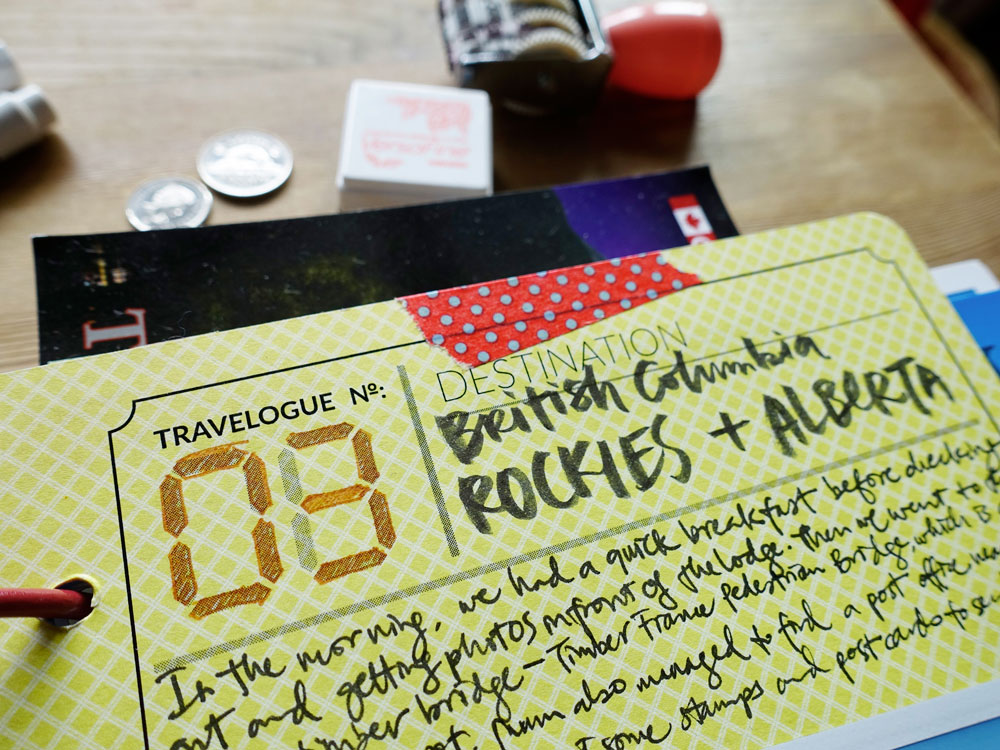 T
TRAVELOGUE Nº:
03
DESTINATION
British Columbia
ROCKIES + ALBERTA
In the morning, we had a quick breakfast before checking
out and getting photos infront of the lodge. Then we went to
timber bridge - Timber Frame Pedestrian Bridge, which B
also managed to find a post office
some stamps and postcards to